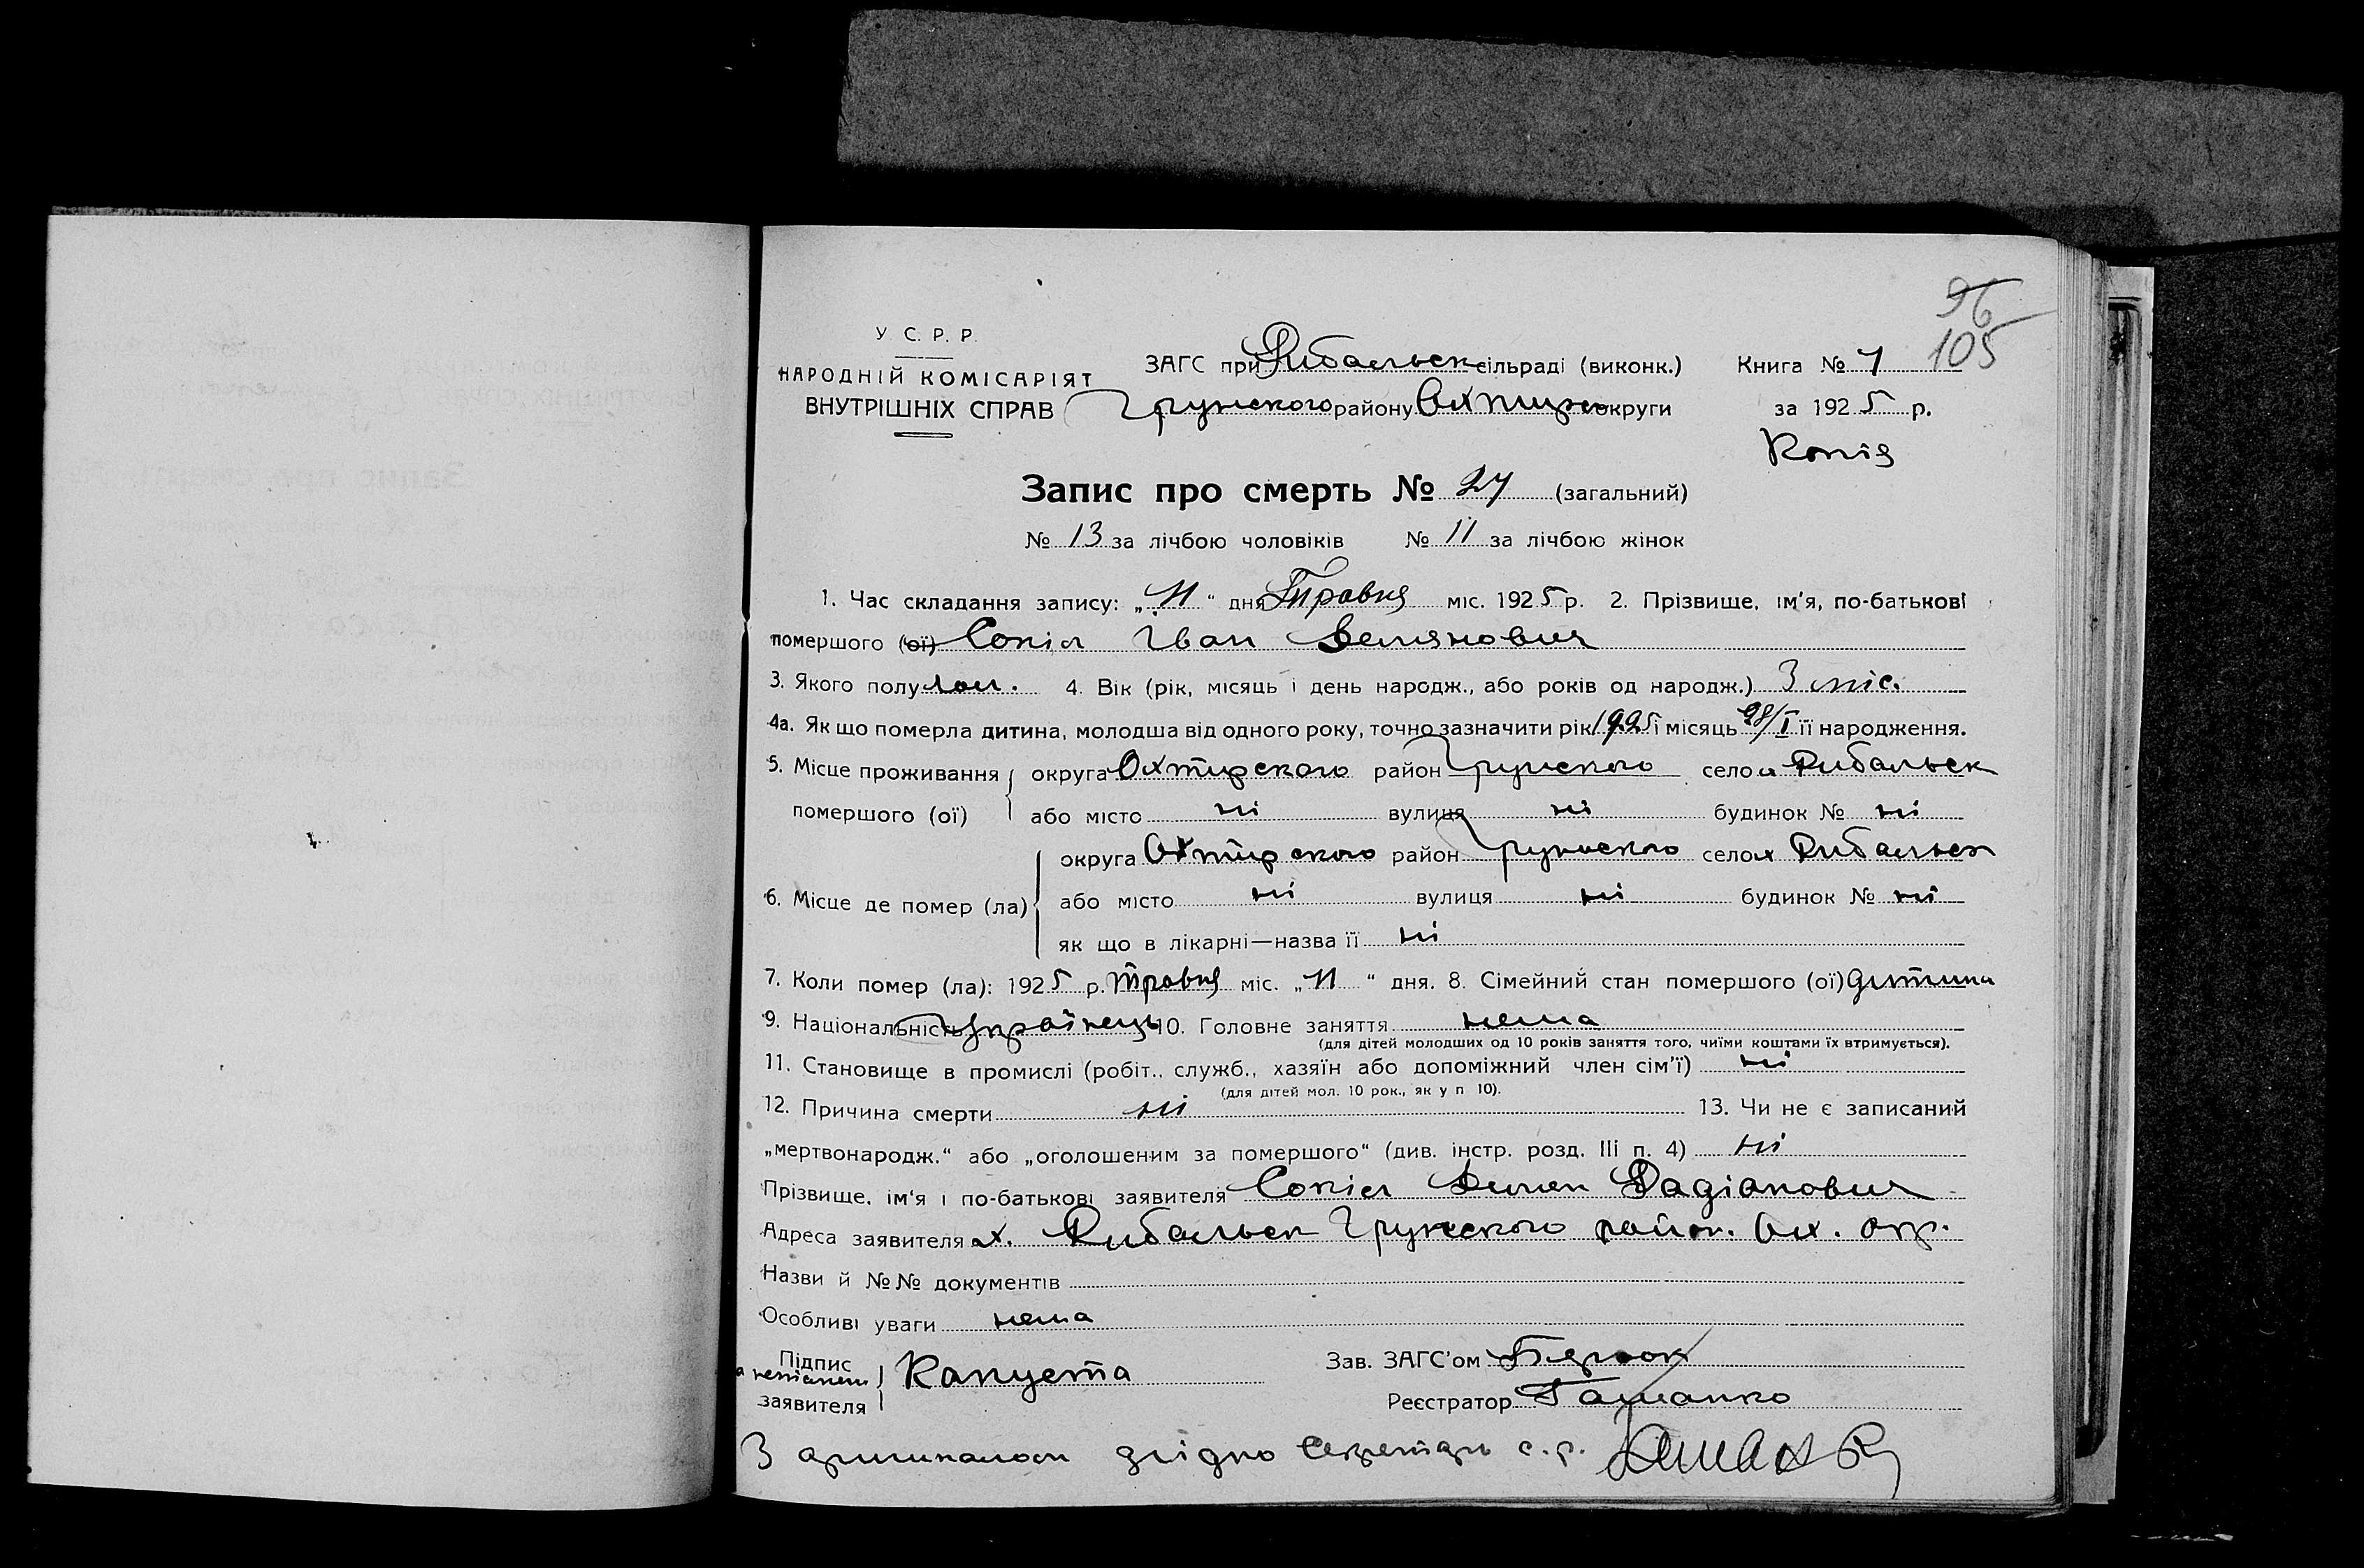 96
105
У С. Р. Р.
НАРОДНІЙ КОМІСАРІЯТ
ВНУТРІШНІХ СПРАВ
ЗАГС при Рибальск сільраді (виконк.) Книга № 1
Грунского району Охтирс округи за 1925 р.
Копія
Запис про смерть № 24 (загальний)
№ 13 за лічбою чоловіків № 11 за лічбою жінок
1. Час складання запису: „11“ дня Травня міс. 1925 р. 2. Прізвище, ім'я, по-батькові
помершого (ої) Сокіл Іван Демянович
3. Якого полу чол. 4. Вік (рік, місяць і день народж., або років од народж.) 3 міс.
4а. Як що померла дитина, молодша від одного року, точно зазначити рік 1925 і місяць 28/I її народження.
5. Місце проживання округа Охтирского район Грунского село х Рибальск
помершого (ої) або місто ні вулиця ні будинок № ні
округа Охтирского район Грунського село х Рибальск
6. Місце де помер (ла) або місто ні вулиця ні будинок № ні
як що в лікарні—назва її ні
7. Коли помер (ла): 1925 р. травня міс. „11“ дня. 8. Сімейний стан помершого (ої) дитина
9. Національність Українець 10. Головне заняття нема
(для дітей молодших од 10 років заняття того, чиїми коштами їх втримується).
11. Становище в промислі (робіт., служб., хазяїн або допоміжний член сім'ї) ні
(для дітей мол. 10 рок., як у п 10).
12. Причина смерти ні 13. Чи не є записаний
„мертвонародж.“ або „оголошеним за помершого“ (див. інстр. розд. III п. 4) ні
Прізвище, ім'я і по-батькові заявителя Сокіл Демян Радіанович
Адреса заявителя х. Рибальск Грунского район. Ох. окр.
Назви й №№ документів
Особливі уваги нема
Підпис
заявителя Капуста
Зав. ЗАГС'ом
Реєстратор
З оригиналом згідно Секретарь с.р.